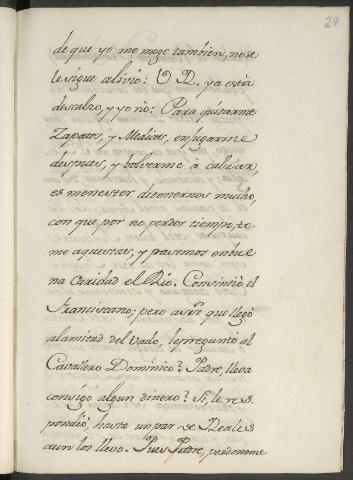 29
de que yo me moge tambien, no se
le sigue alivio: V. R. ya està
descalzo, y yo nò: Para quitarme
Zapatos, y Medias, enjugarme
despues, y bolverme à calzar,
es menester detenernos mucho,
con que, por no perder tiempo, to-
me aquestas, y pasemos en bue
na Caridad el Rio. Consintiò el
Franciscano; pero asi que llegò
a la mitad del Vado, le preguntò el
Cavallero Dominico? Padre, lleva
consigo algun dinero? Si, le res
pondiò, hasta un par de Reales
aun los llevo. Pues Padre, perdoneme